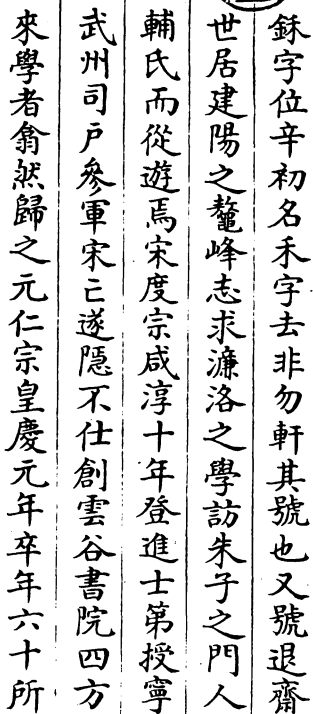 鉌字位辛初名禾字去非勿軒其號也又號退齋
世居建陽之鼇峰志求濂洛之學訪朱子之門人
輔氏而從遊焉宋度宗咸淳十年登進士第授寧
武州司戶參軍宋亡遂隱不仕創雲谷書院四方
來學者翕然歸之元仁宗皇慶元年卒年六十所